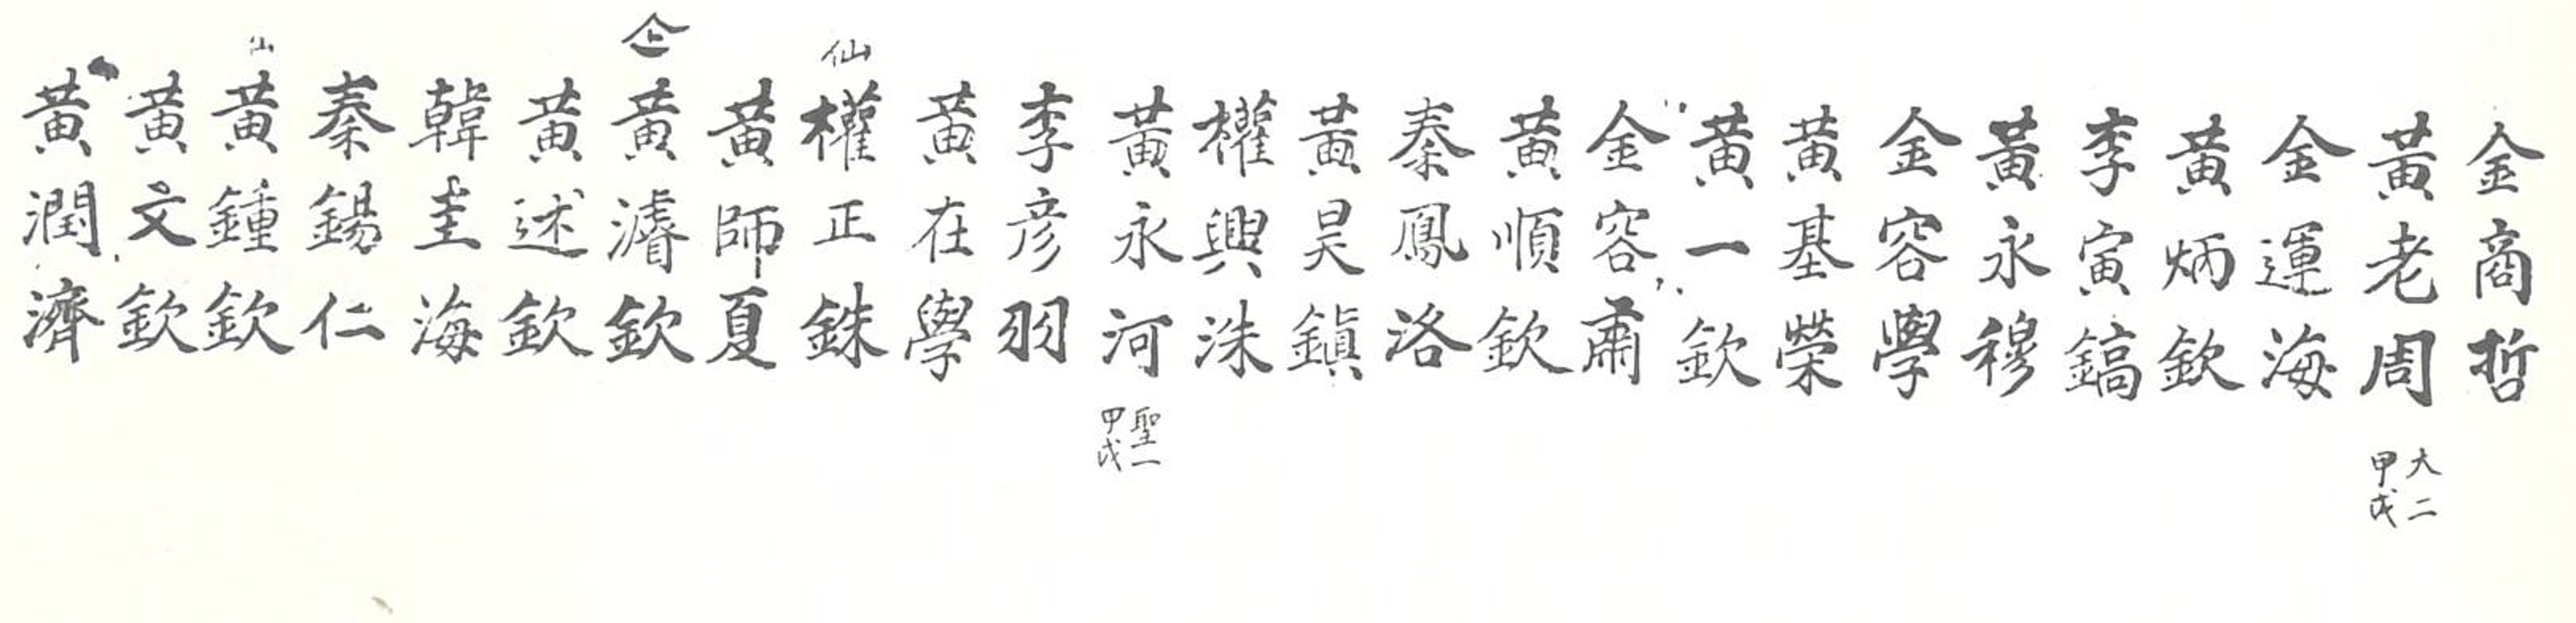 金商哲
黃老周
大二
甲戌
金運海
黃炳欽
李寅鎬
黃永穆
金容學
黃基榮
黃一欽
金容肅
黃順欽
秦鳳洛
黃昊鎭
權興洙
黃永河
聖一
甲戌
李彦羽
黃在學
仙
權正銖
黃師夏
仚
黃濬欽
黃述欽
韓圭海
秦錫仁
仙
黃鍾欽
黃文欽
黃潤濟